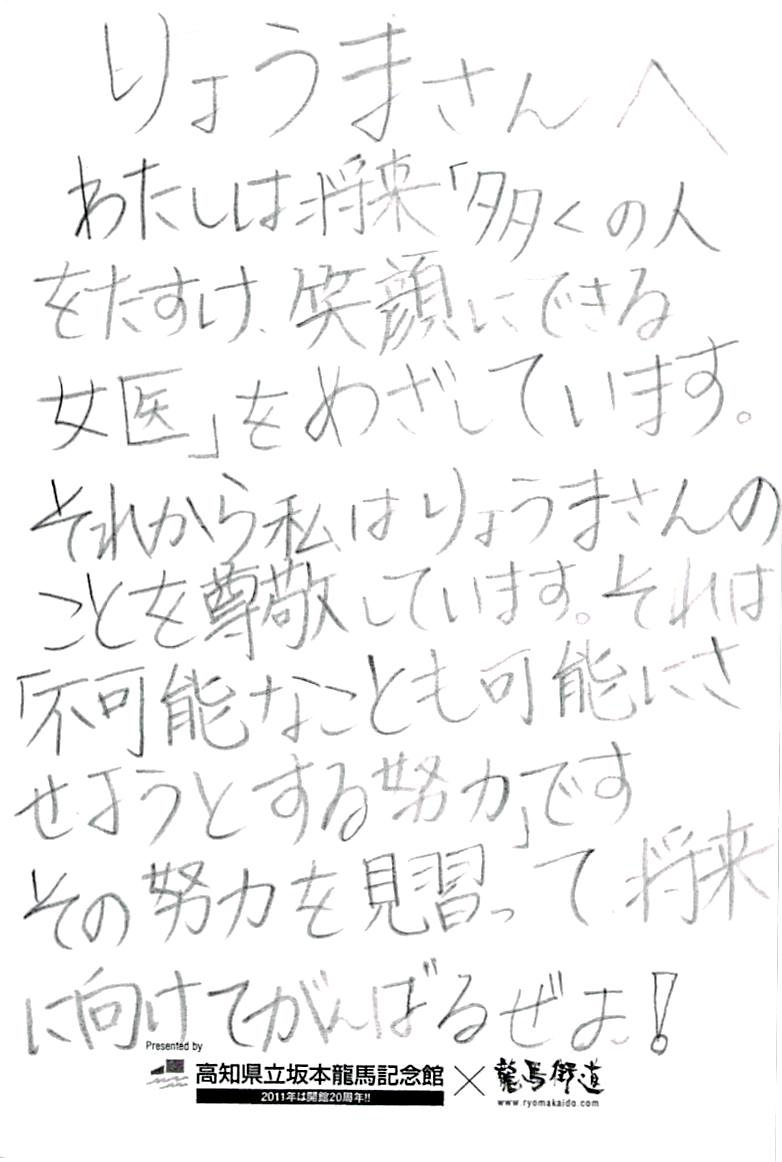 りょうまさんへ
わたしは将来「多くの人
をたすけ、笑顔にできる
女医」をめざしています。
それから私はりょうまさんの
ことを尊敬しています。それは
「不可能なことも可能にさ
せようとする努力」です
その努力を見習って将来
に向けてがんばるぜよ!
Presented by
高知県立坂本龍馬記念館×龍馬街道
2011年は開館20周年!!
www.ryomakaido.com